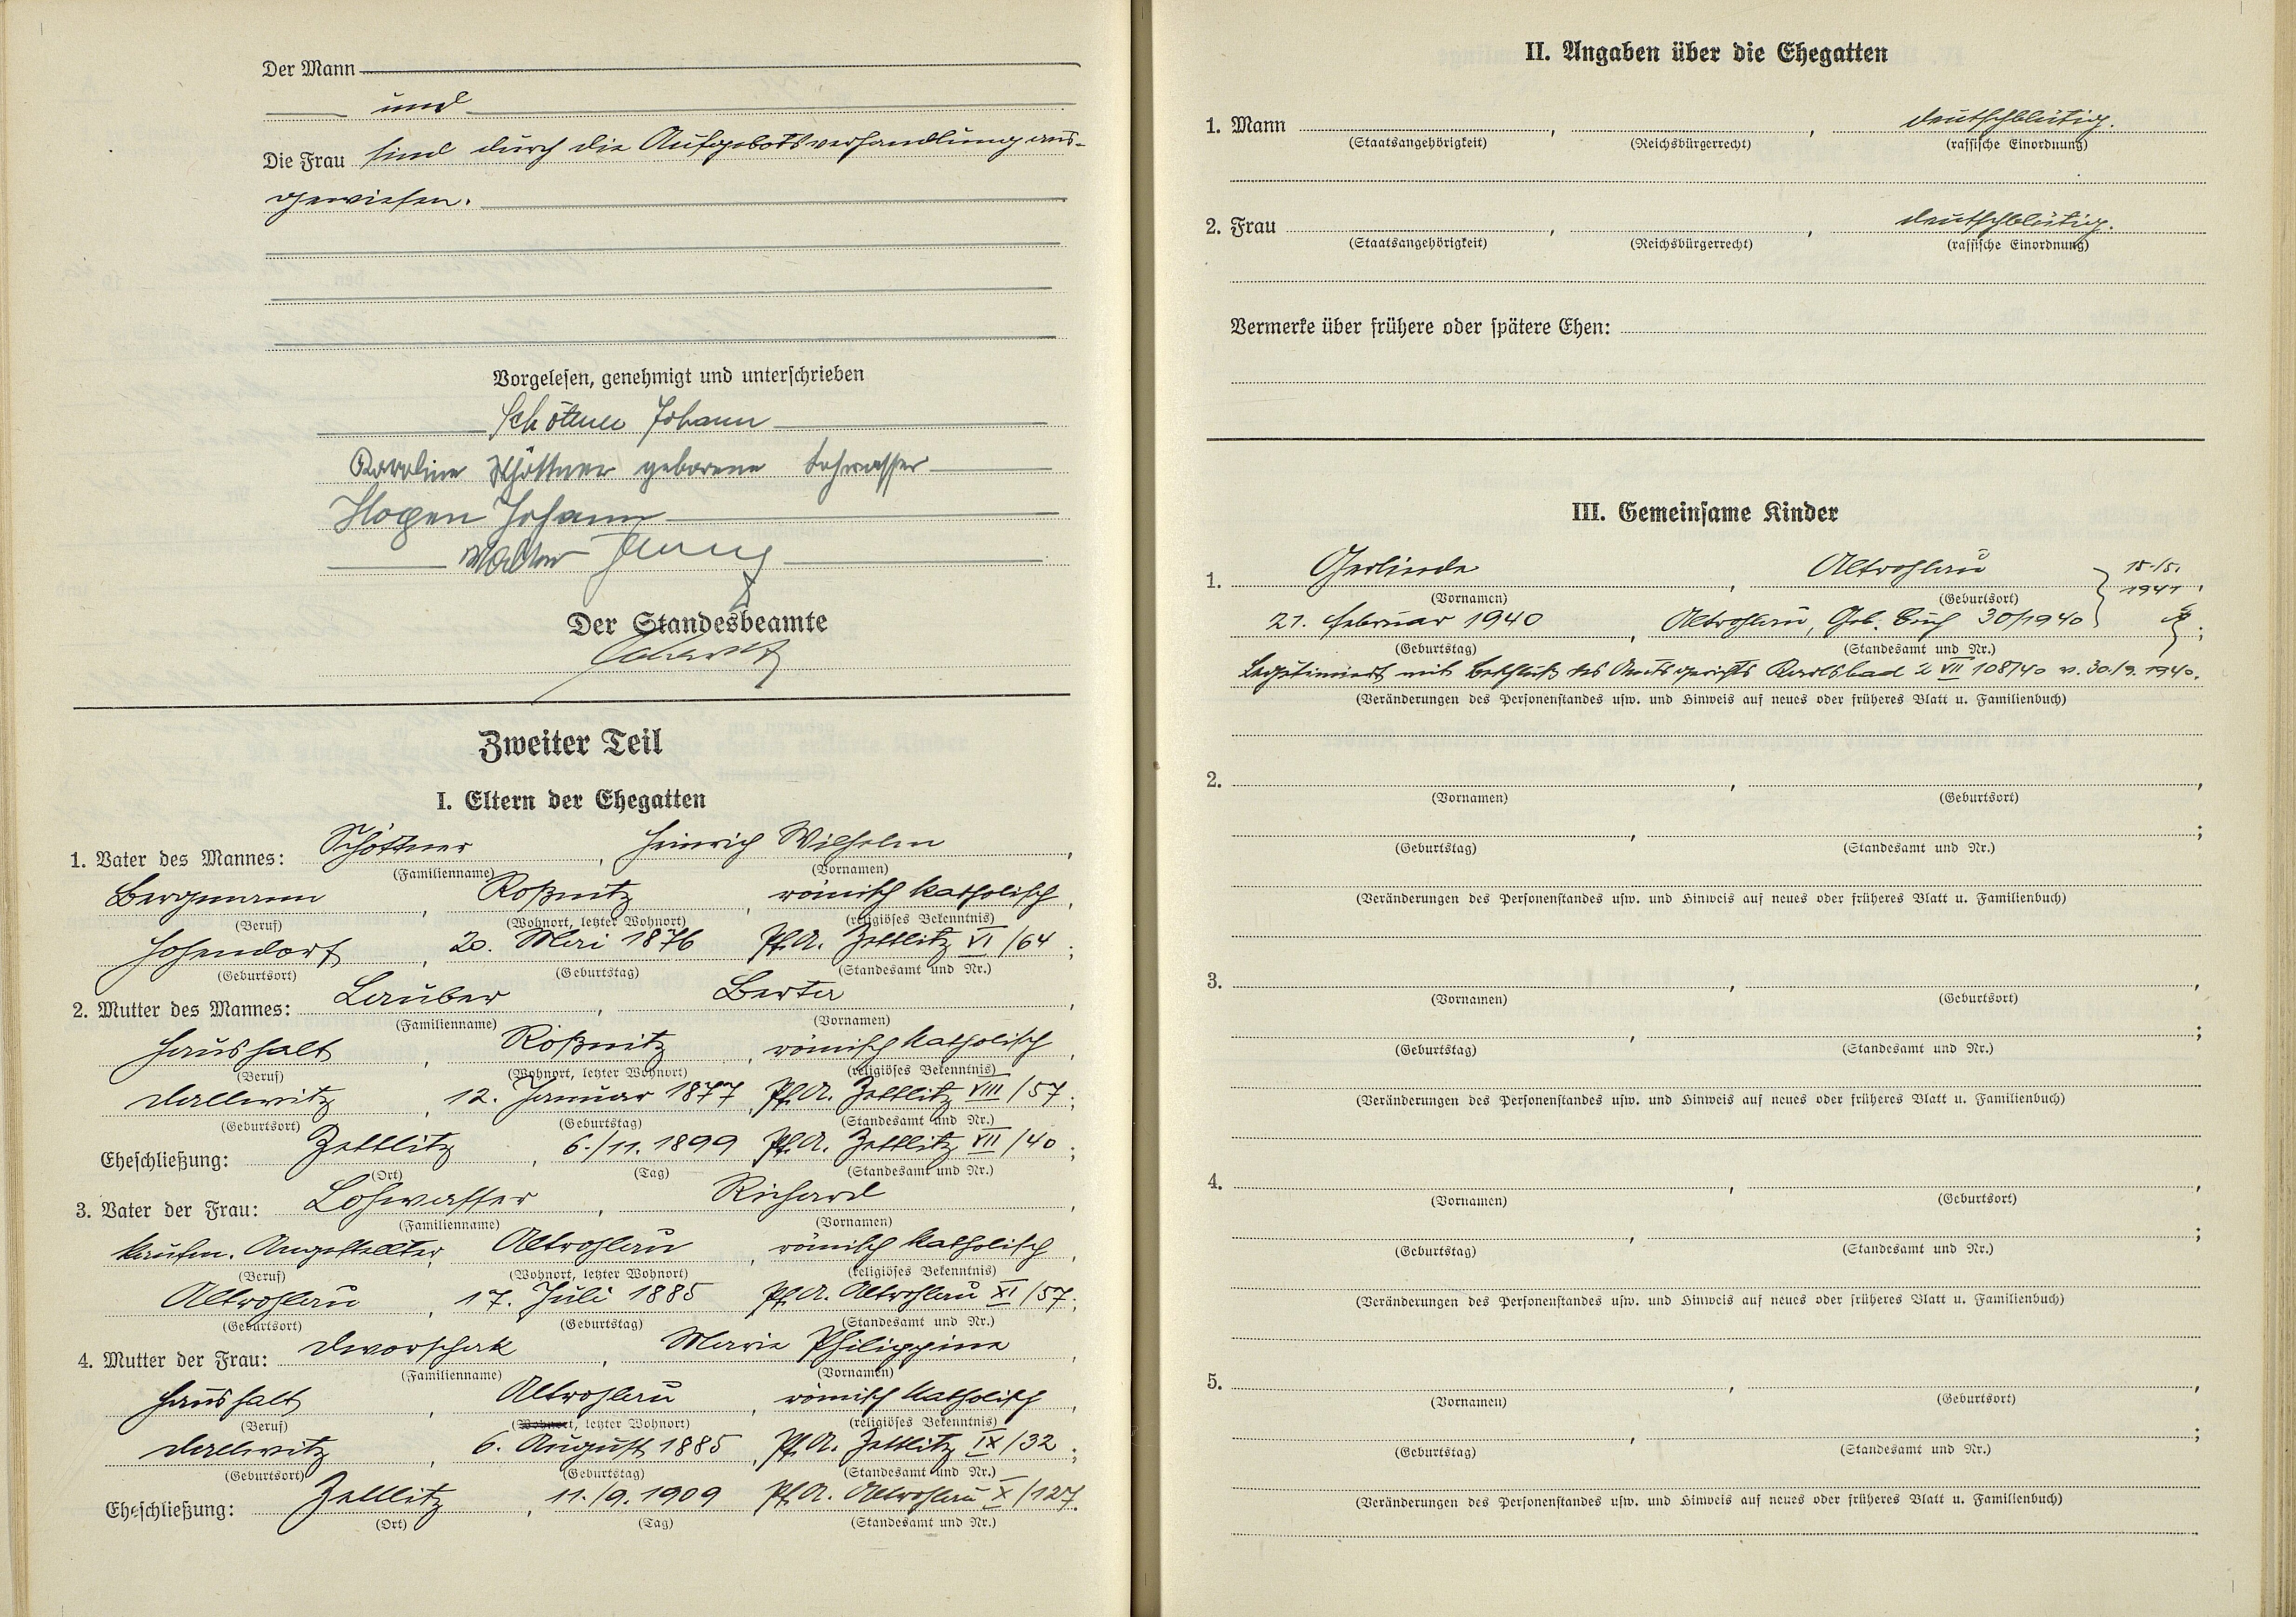 Der Mann
und
Die Frau sind durch die Aufgebotsverhandlung aus-
gewiesen.
Vorgelesen, genehmigt und unterschrieben
Schöttner Johann
Karoline Schöttner geborene Lohwasser
Hagen Johann
Walter
Der Standesbeamte
Zweiter Teil
I. Eltern der Ehegatten
1. Vater des Mannes: Schöttner, Heinrich Wilhelm,
(Familienname) (Vornamen)
Bergmann, Roßnitz, römisch katholisch,
(Beruf) (Wohnort, letzter Wohnort) (religiöses Bekenntnis)
Hohendorf, 20. Mai 1876 Pf.A. Zettlitz VI/64;
(Geburtsort) (Geburtstag) (Standesamt und Nr.)
2. Mutter des Mannes: Lauber, Berta,
(Familienname) (Vornamen)
Haushalt, Roßnitz, römisch katholisch,
(Beruf) (Wohnort, letzter Wohnort) (religiöses Bekenntnis)
Dallwitz, 12. Januar 1877, Pf.A. Zettlitz VIII/57;
(Geburtsort) (Geburtstag) (Standesamt und Nr.)
Eheschließung: Zettlitz, 6./11. 1899 Pf.A. Zettlitz VII/40;
(Ort) (Tag) (Standesamt und Nr.)
3. Vater der Frau: Lohwasser, Richard,
(Familienname) (Vornamen)
kaufm. Angestellter, Altrohlau, römisch katholisch,
(Beruf) (Wohnort, letzter Wohnort) (religiöses Bekenntnis)
Altrohlau, 17. Juli 1885 Pf.A. Altrohlau XI/57;
(Geburtsort) (Geburtstag) (Standesamt und Nr.)
4. Mutter der Frau: Dworschak, Marie Philippine,
(Familienname) (Vornamen)
Haushalt, Altrohlau, römisch katholisch,
(Beruf) (Wohnort, letzter Wohnort) (religiöses Bekenntnis)
Dallwitz, 6. August 1885, Pf.A. Zettlitz IX/32;
(Geburtsort) (Geburtstag) (Standesamt und Nr.)
Eheschließung: Zettlitz, 11./9. 1909 Pf.A. Altrohlau X/127.
(Ort) (Tag) (Standesamt und Nr.)
II. Angaben über die Ehegatten
1. Mann , , deutschblütig.
(Staatsangehörigkeit) (Reichsbürgerrecht) (rassische Einordnung)
2. Frau , , deutschblütig.
(Staatsangehörigkeit) (Reichsbürgerrecht) (rassische Einordnung)
Vermerke über frühere oder spätere Ehen:
III. Gemeinsame Kinder
1. Gerlinde, Altrohlau
(Vornamen) (Geburtsort) 1941,
21. Februar 1940, Altrohlau, Geb. Buch 30/1940;
(Geburtstag) (Standesamt und Nr.)
Legitimiert mit Beschluß des Amtsgerichts Karlsbad 2 VII 108/40 v. 30./9. 1940.
(Veränderungen des Personenstandes usw. und Hinweis auf neues oder früheres Blatt u. Familienbuch)
2. , ,
(Vornamen) (Geburtsort)
, ;
(Geburtstag) (Standesamt und Nr.)
(Veränderungen des Personenstandes usw. und Hinweis auf neues oder früheres Blatt u. Familienbuch)
3. , ,
(Vornamen) (Geburtsort)
, ;
(Geburtstag) (Standesamt und Nr.)
(Veränderungen des Personenstandes usw. und Hinweis auf neues oder früheres Blatt u. Familienbuch)
4. , ,
(Vornamen) (Geburtsort)
, ;
(Geburtstag) (Standesamt und Nr.)
(Veränderungen des Personenstandes usw. und Hinweis auf neues oder früheres Blatt u. Familienbuch)
5. , ,
(Vornamen) (Geburtsort)
, ;
(Geburtstag) (Standesamt und Nr.)
(Veränderungen des Personenstandes usw. und Hinweis auf neues oder früheres Blatt u. Familienbuch)